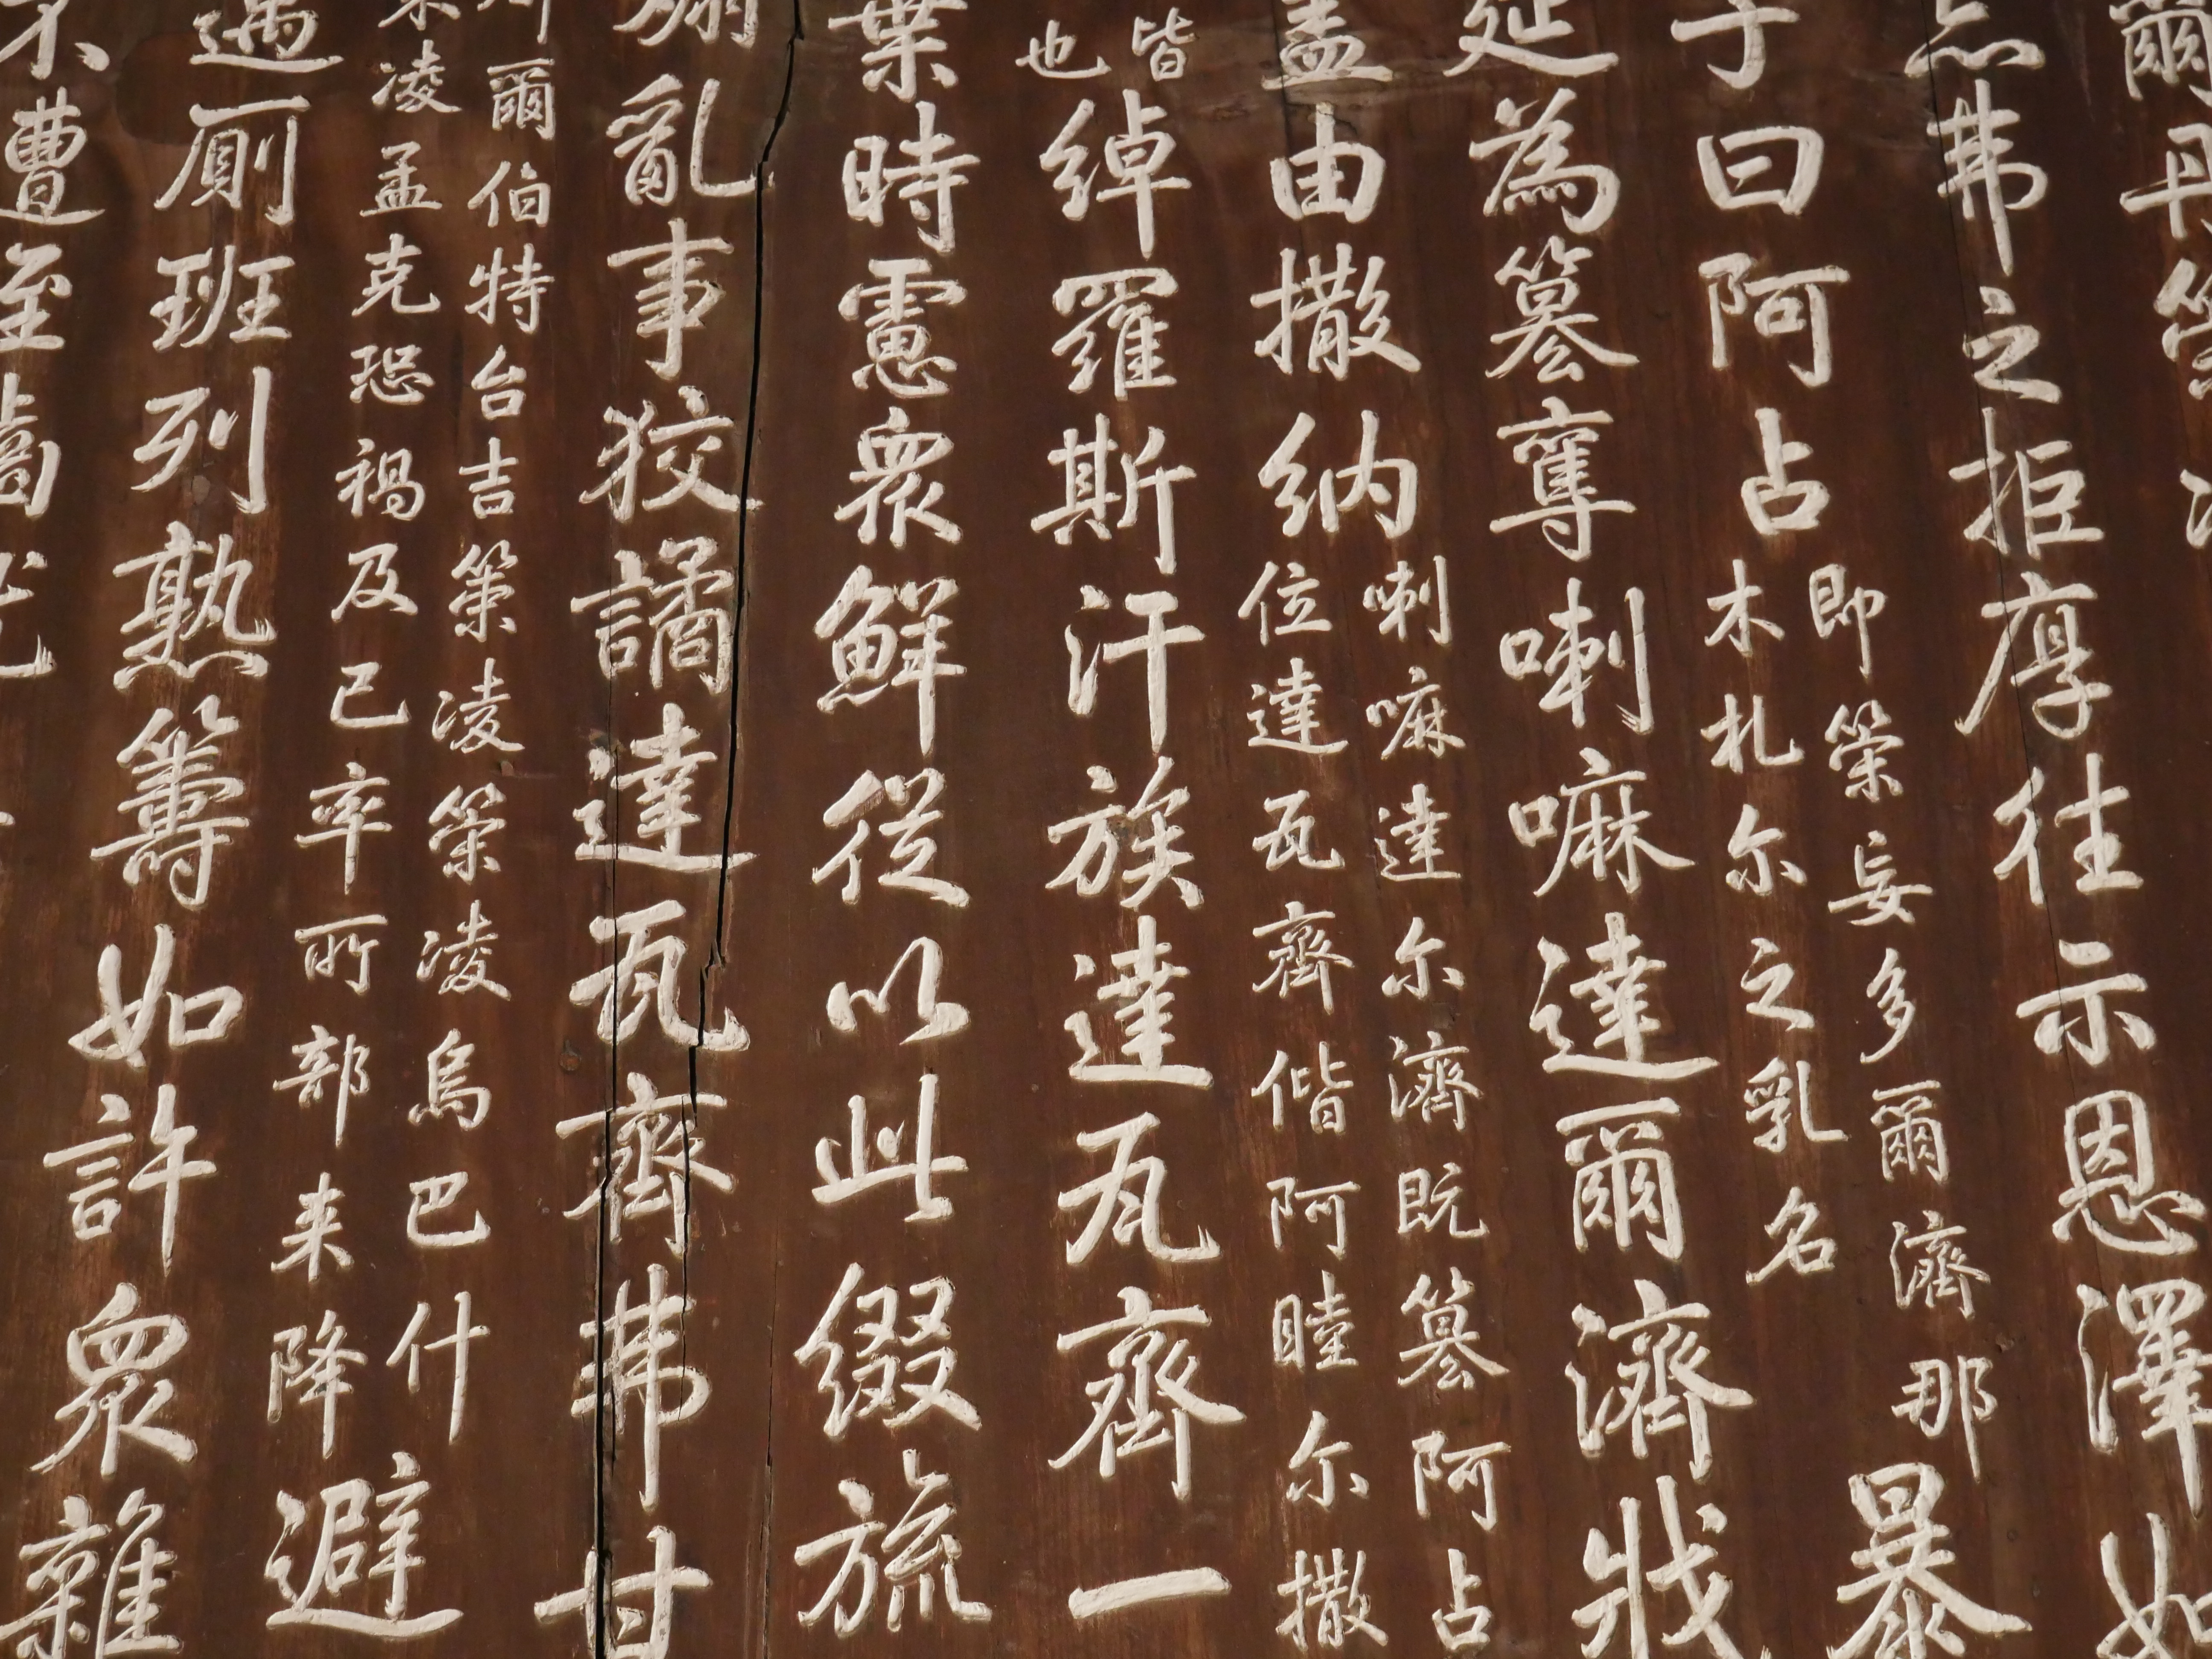 爾丹策
点弗之拒厚往示恩澤如
子曰阿占
即策妄多爾濟那
木札尔之乳名
暴
延為篡奪喇嘛達爾濟戕
孟由撒納
喇嘛達尔濟既篡阿占
位達瓦齊偕阿睦尔撒
皆
也
綽羅斯汗族達瓦齊一
葉時慮衆鮮從以此綴旒
亂事狡譎達瓦齊弗甘
爾伯特台吉策凌策凌烏巴什
凌孟克恐禍及已卒所部来降
避
過廁班列熟籌如許衆雜
不遭至